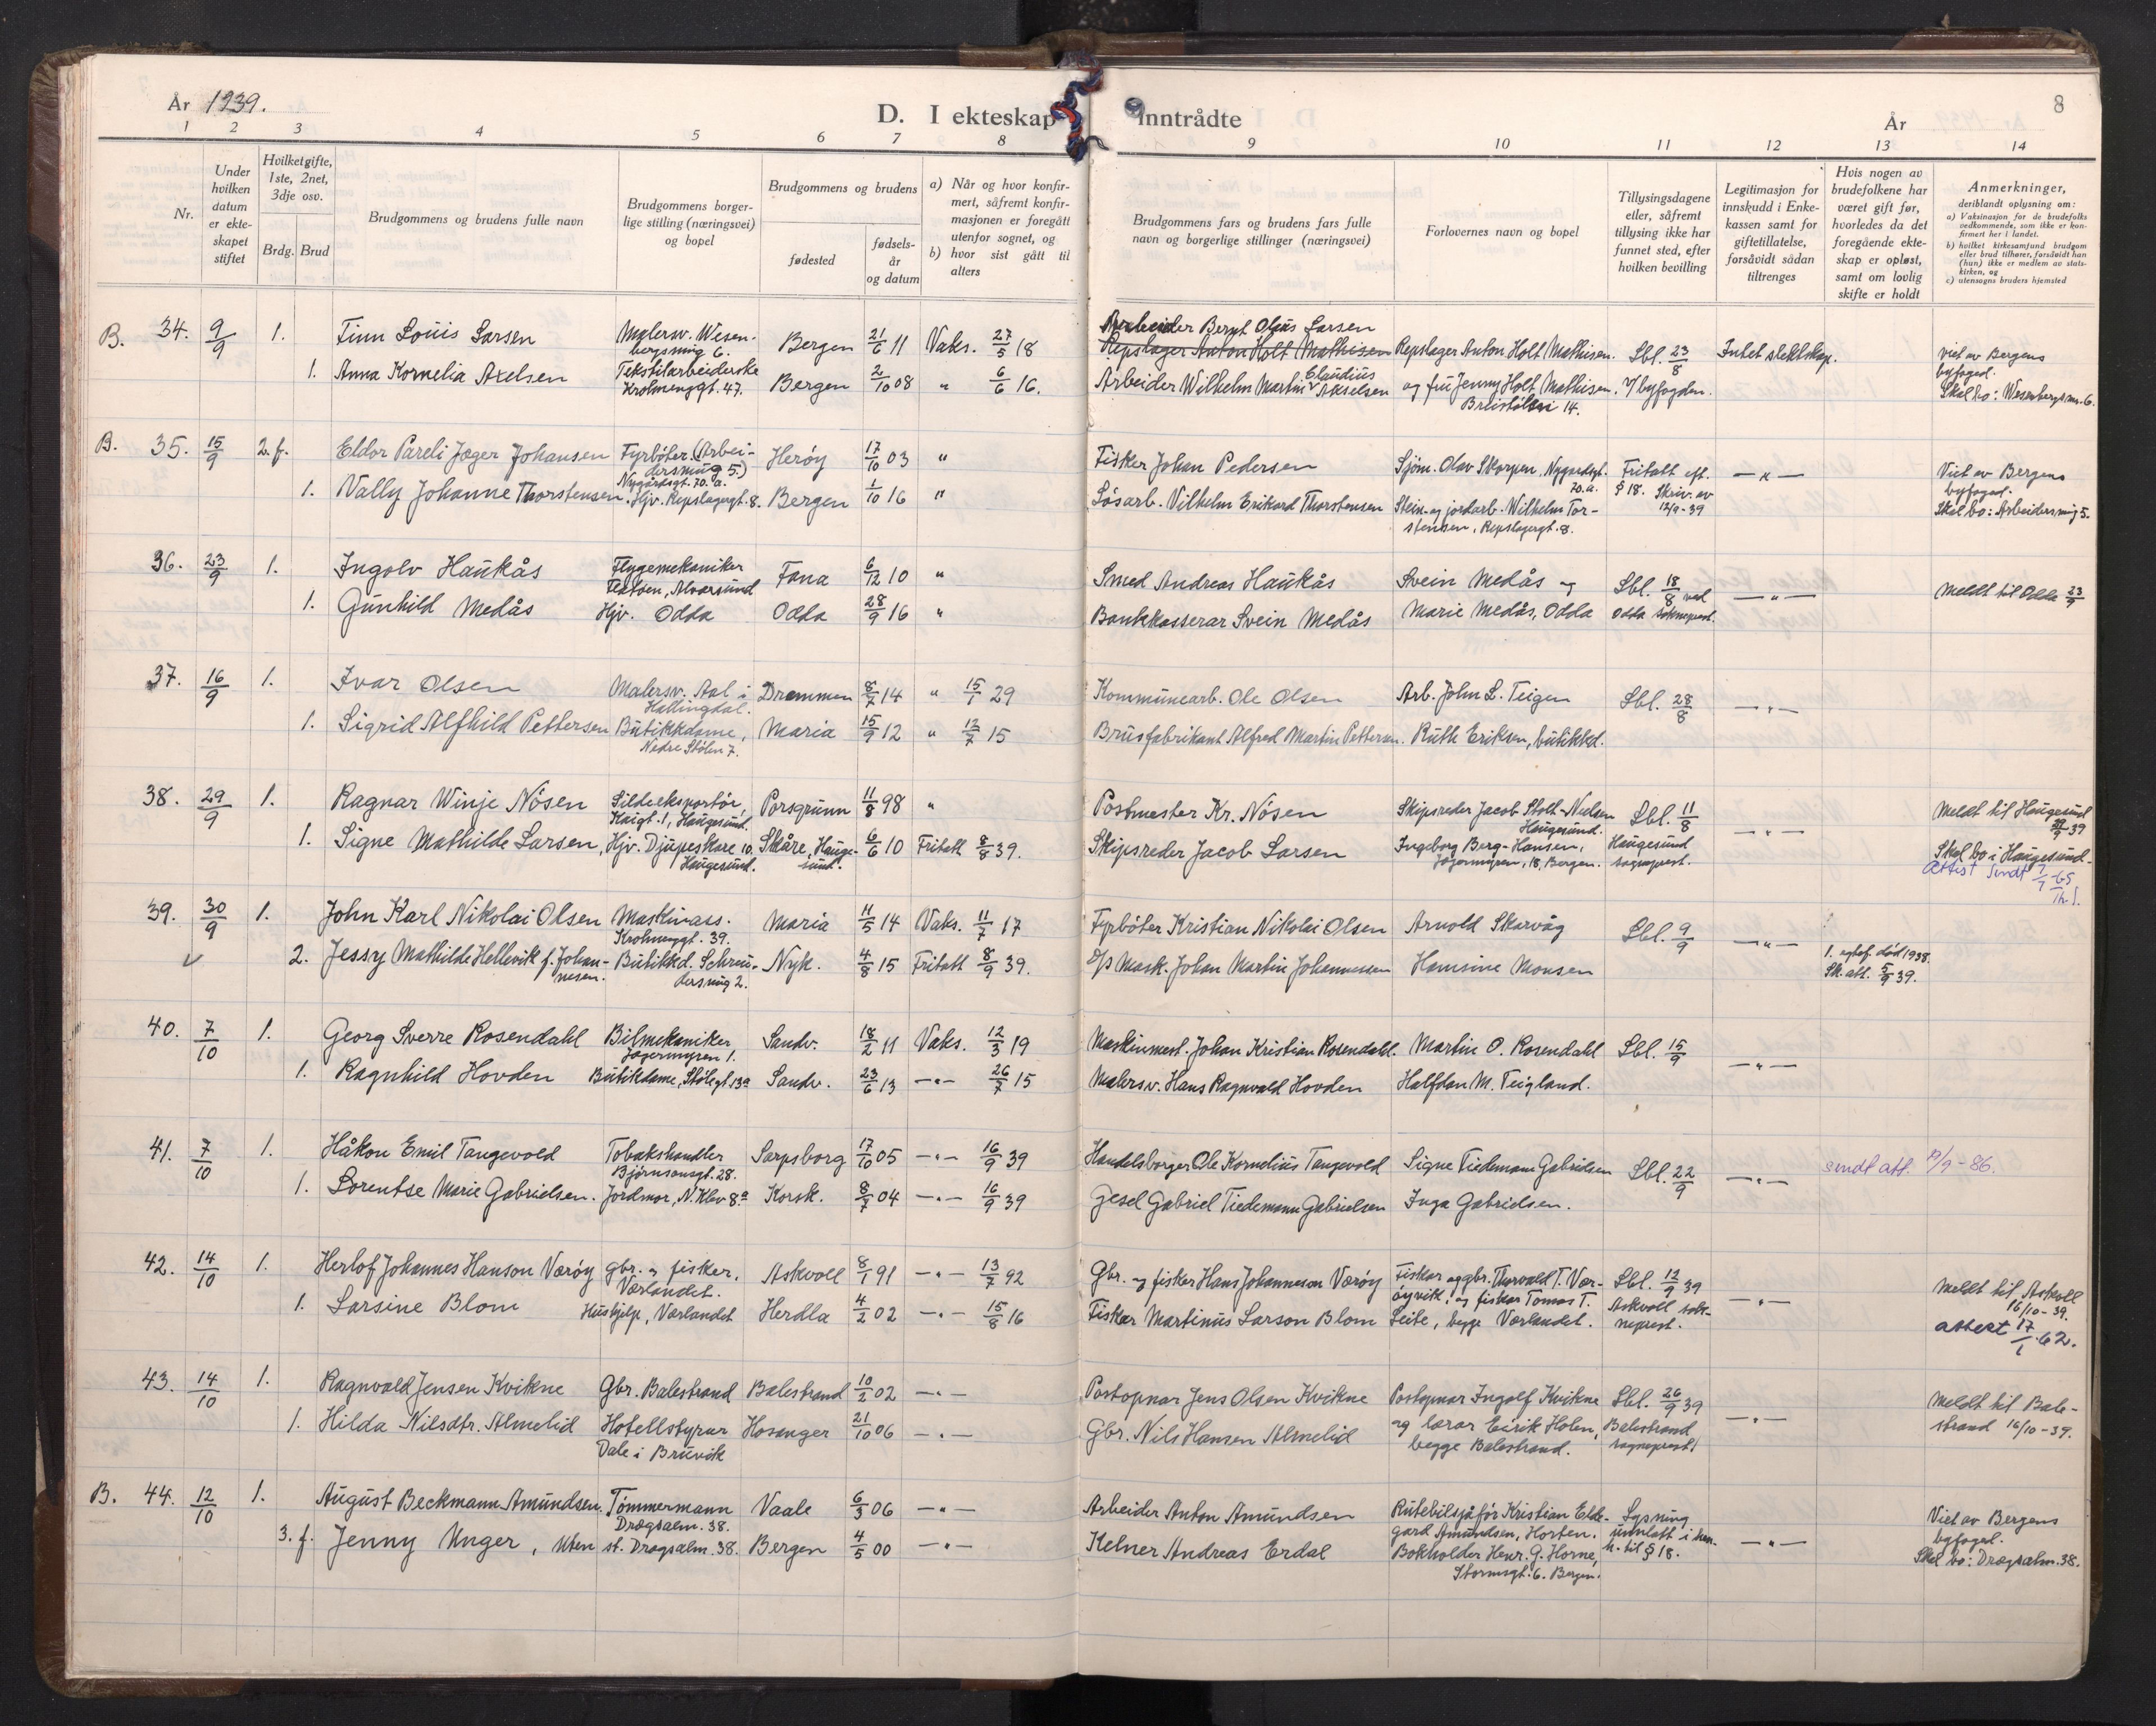 År 1939.
D. I ekteskap inntrådte
År
8
1 2 3 4 5 6 7 8 9 10 11 12 13 14
Nr.
Under hvilken datum er ekteskapet stiftet
Hvilket gifte, 1ste, 2net, 3dje osv.
Brdg. Brud
Brudgommens og brudens fulle navn
Brudgommens borgerlige stilling (næringsvei) og bopel
Brudgommens og brudens
fødested
fødselsår og datum
a) Når og hvor konfirmert, såfremt konfirmasjonen er foregått utenfor sognet, og
b) hvor sist gått til alters
Brudgommens fars og brudens fars fulle navn og borgerlige stillinger (næringsvei)
Forlovernes navn og bopel
Tillysingsdagene eller, såfremt tillysing ikke har funnet sted, efter hvilken bevilling
Legitimasjon for innskudd i Enkekassen samt for giftetillatelse, forsåvidt sådan tiltrenges
Hvis nogen av brudefolkene har været gift før, hvorledes da det foregående ekteskap er opløst, samt om lovlig skifte er holdt
Anmerkninger, deriblandt oplysning om:
a) Vaksinasjon for de brudefolks vedkommende, som ikke er konfirmert her i landet.
b) hvilket kirkesamfund brudgom eller brud tilhører, forsåvidt han (hun) ikke er medlem av statskirken, og
c) utensogns bruders hjemsted
B. 34. 9/9 1. Finn Louis Larsen Malersv. Wesenbergsmug 6. Bergen 21/6 11 Vaks. 27/5 18 Arbeider Bernt Olus Larsen
Repslager Anton Holt Mathisen Repslager Anton Holt Mathisen. Lbl. 23/8 Intet slektskap. viet av Bergens byfoged.
1. Anna Kornelia Axelsen Tekstilarbeiderske Krohnenggt. 47. Bergen 2/10 08 " 6/6 16. Arbeider Wilhelm Martin Claudius Akselsen og fru Jenny Holt Mathisen. v/ byfogden. Skal bo: Wesenbergsm. 6.
B. 35. 15/9 2. f. Eldor Pareli Jæger Johansen Fyrbøter. (Arbeidersmug 5.) Nygårdsgt. 70. a. Herøy 17/10 03 " Fisker Johan Pedersen Sjøm. Olav Skorpen, Nygårdsgt. 70.a. Fritatt eft. § 18. Skriv. av 12/9-39 —"— Viet av Bergens byfoged.
1. Vally Johanne Thorstensen. Hjv. Repslagergt. 8. Bergen 1/10 16 " Løsarb. Vilhelm Erikard Thorstensen Stein- og jordarb. Wilhelm Torstensen, Repslagergt. 8. Skal bo: Arbeidersmug 5.
36. 23/9 1. Ingolv Haukås Flygemekaniker Flatøen, Alversund Fana 6/12 10 " Smed Andreas Haukås Svein Medås og Lbl. 18/8 ved —"— Meldt til Odda 23/9
1. Gunhild Medås Hjv. Odda Odda 28/9 16 " Bankkasserar Svein Medås Marie Medås, Odda Odda sokneprest.
37. 16/9 1. Ivar Olsen Malersv. Aal i Hallingdal. Drammen 8/7 14 " 15/1 29 Kommunearb. Ole Olsen Arb. John L. Teigen Lbl. 28/8 —"—
1. Sigrid Alfhild Pettersen Butikkdame, Nedre Stølen 7. Maria 15/9 12 " 12/7 15 Brusfabrikant Alfred Martin Pettersen. Ruth Eriksen, butikkd.
38. 29/9 1. Ragnar Winje Nósen Sildeeksportør, Kaigt. 1, Haugesund. Porsgrunn 11/8 98 " Postmester Kr. Nósen Skipsreder Jacob Stolt-Nielsen Haugesund. Lbl. 11/8 —"— Meldt til Haugesund 29/9 39
1. Signe Mathilde Larsen, Hjv. Djupeskare 10. Haugesund. Skåre, Haugesund. 6/6 10 Fritatt 8/8 39. Skipsreder Jacob Larsen Ingeborg Berg-Hansen, Jægermyren, 18, Bergen. Haugesund sogneprest. Skal bo i Haugesund.
Attest sendt 7/7-65
39. 30/9 1. John Karl Nikolai Olsen Maskinass. Krohnenggt. 39. Maria 11/5 14 Vaks. 11/7 17 Fyrbøter Kristian Nikolai Olsen Arnold Skarvåg Lbl. 9/9 —"—
2. Jessy Mathilde Hellevik f. Johannesen. Butikkd. Schreudersmug 2. Nyk. 4/8 15 Fritatt 8/9 39. Mask. Johan Martin Johannessen Hansine Monsen 1. egtef. død 1938. Sk. att. 5/9 39.
40. 7/10 1. Georg Sverre Rosendahl Bilmekaniker Jægermyren 1. Sandv. 18/2 11 Vaks. 12/3 19 Maskinmest. Johan Kristian Rosendahl. Martin O. Rosendahl Lbl. 15/9 —"—
1. Ragnhild Hovden Butikdame, Stølegt. 13a Sandv. 23/6 13 —"— 26/7 15 Malersv. Hans Ragnvald Hovden Halfdan M. Teigland.
41. 7/10 1. Håkon Emil Tangevold Tobakshandler Bjørnsonsgt. 28. Sarpsborg 17/10 05 —"— 16/9 39 Handelsborger Ole Kornelius Tangevold Signe Tiedemann Gabrielsen Lbl. 22/9 —"— sendt att. 17/9-86.
1. Lorentse Marie Gabrielsen. Jordmor, N. Klev 8a Korsk. 8/7 04 —"— 16/9 39 Gesel Gabriel Tiedemann Gabrielsen Inga Gabrielsen.
42. 14/10 1. Herlof Johannes Hanson Værøy gbr. og fisker, Værlandet. Askvoll 8/1 91 —"— 13/7 92 Gbr. og fisker Hans Johanneson Værøy Fiskar og gbr. Thorvald T. Værøyvik, og fiskar Tomas T. Lbl. 12/9 39 —"— Meldt til Askvoll 16/10-39.
1. Larsine Blom Hushjelp, Værlandet Herdla 4/2 02 —"— 15/8 16 Fiskar Martinus Larson Blom Leite, begge Værlandet. Askvoll sokneprest. attest 17/1-62.
43. 14/10 1. Ragnvald Jensen Kvikne Gbr. Balestrand Balestrand 10/2 02 —"— Postopnar Jens Olsen Kvikne Postopnar Ingolf Kvikne Lbl. 26/9 39 —"— Meldt til Balestrand 16/10-39.
1. Hilda Nilsdtr. Almelid Hotellstyrar Dale i Bruvik Hosanger 21/10 06 —"— Gbr. Nils Hansen Almelid og lærar Eirik Holen, begge Balestrand. Balestrand sogneprest.
B. 44. 12/10 1. August Beckmann Amundsen. Tømmermann Drægsalm. 38. Vaale 6/3 06 —"— Arbeider Anton Amundsen Rutebilsjåfør Kristian Eldegard Amundsen, Horten. Lysning unnlatt i hen. h. til § 18. —"— Viet av Bergens byfoged.
3. f. Jenny Unger, Uten st. Drægsalm. 38. Bergen 4/5 00 —"— Kelner Andreas Erdal Bokholder Henr. G. Horne, Stormsgt. 6. Bergen. Skal bo: Drægsalm. 38.